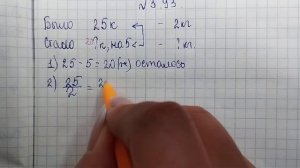 № 393
Было 25к - 2кг
Стало 20?к, на5< - ?кг.
1) 25 - 5 = 20(к) осталось
2) 25/2 = 2